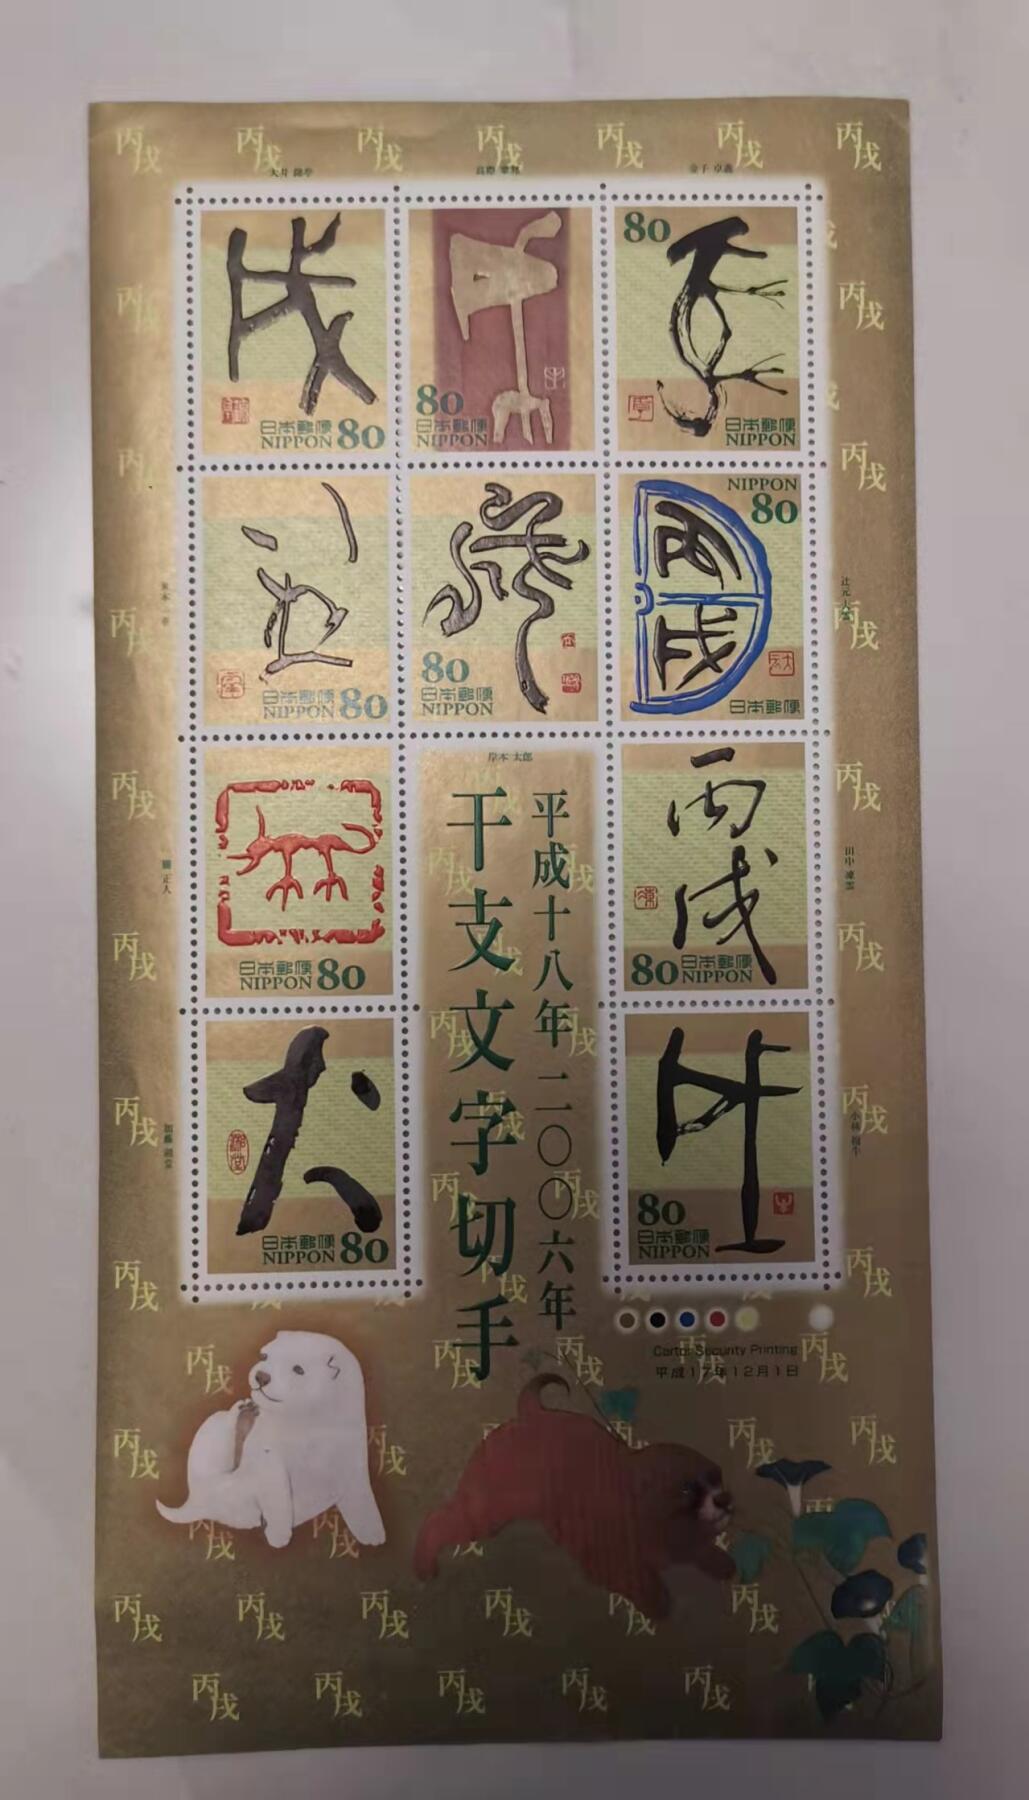 丙戌 丙戌 丙戌 丙戌 丙戌 丙戌 丙戌
大井 錦亭
金子 卓義
日本郵便
NIPPON 80
80
日本郵便
NIPPON
80
日本郵便
NIPPON
日本郵便
NIPPON 80
80
日本郵便
NIPPON
NIPPON
80
丙戌
日本郵便
岸本 太郎
平成十八年 二〇〇六年
干支文字切手
日本郵便
NIPPON 80
丙戌
80 日本郵便
NIPPON
田中 凍雲
関 正人
犬
日本郵便
NIPPON 80
80
日本郵便
NIPPON
Cartor Security Printing
平成17年12月1日
丙戌 丙戌 丙戌 丙戌
丙戌 丙戌 丙戌
丙戌 丙戌 丙戌 丙戌 丙戌 丙戌
丙戌 丙戌 丙戌 丙戌 丙戌